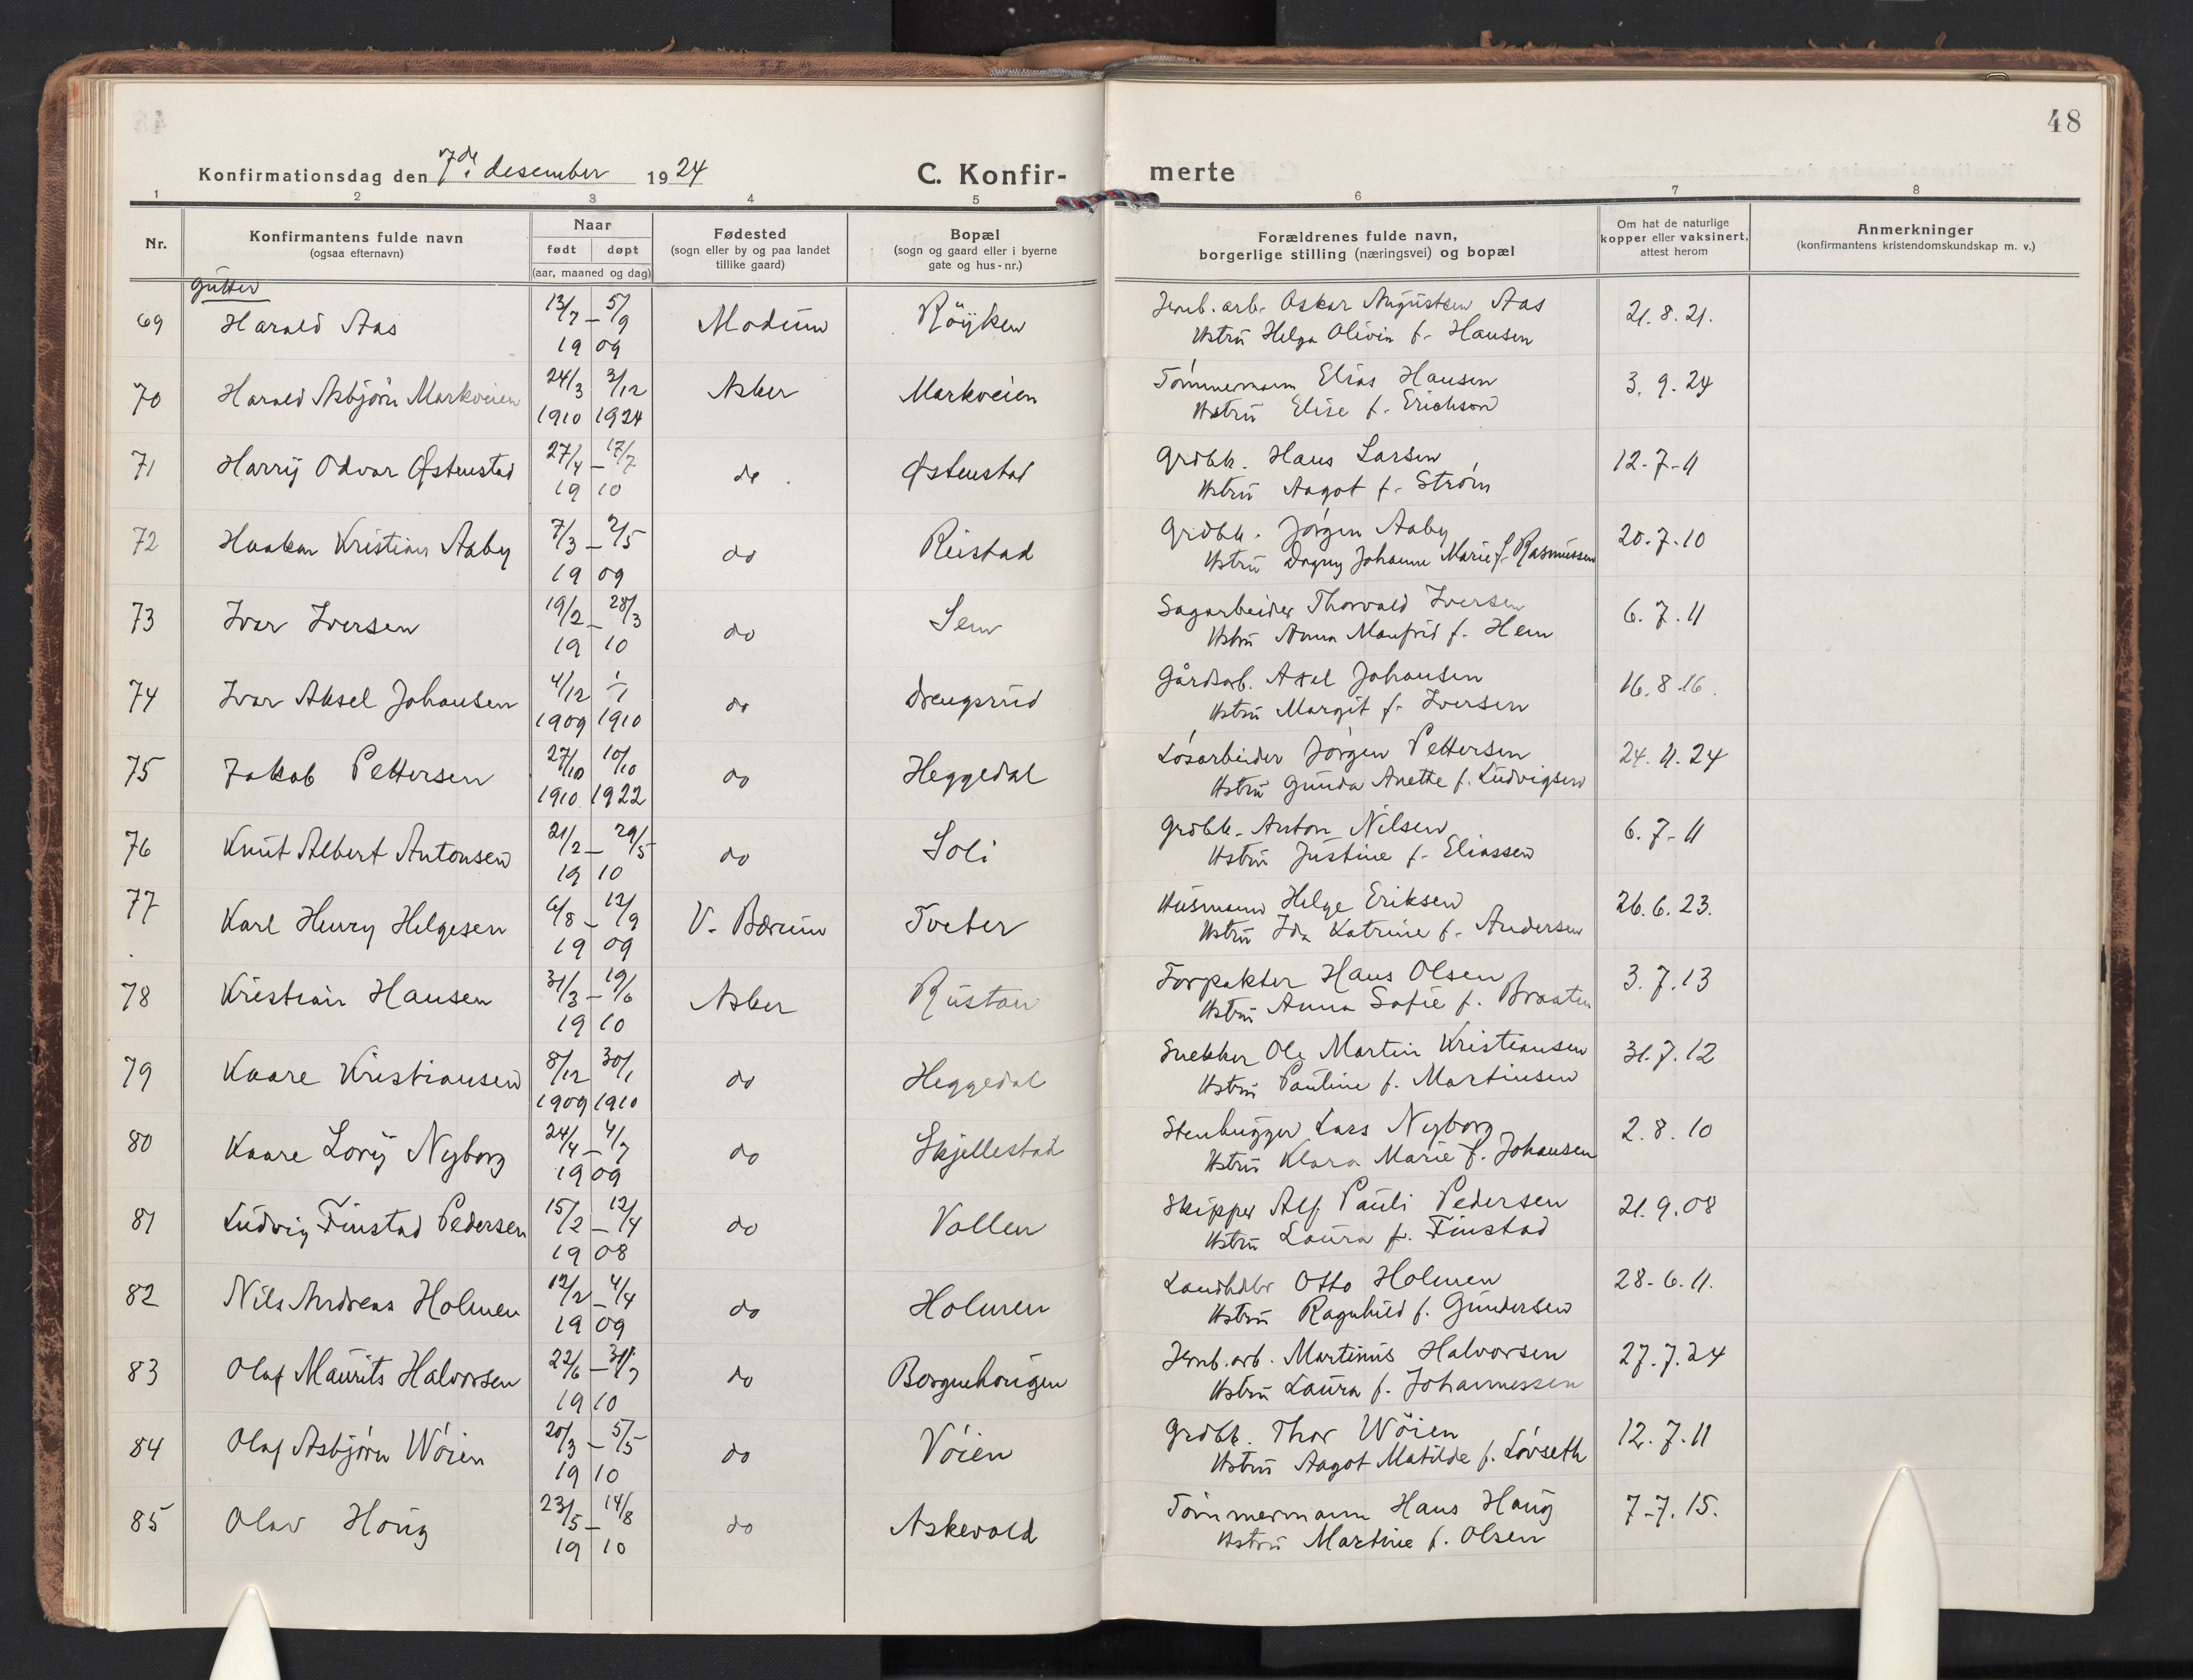 48
Konfirmationsdag den 7de desember 1924
C. Konfir-
merte
1 2 3 4 5 6 7 8
Nr.
Konfirmantens fulde navn
(ogsaa efternavn)
Naar
født døpt
(aar, maaned og dag)
Fødested
(sogn eller by og paa landet
tillike gaard)
Bopæl
(sogn og gaard eller i byerne
gate og hus-nr.)
Forældrenes fulde navn,
borgerlige stilling (næringsvei) og bopæl
Om hat de naturlige
kopper eller vaksinert,
attest herom
Anmerkninger
(konfirmantens kristendomskundskap m. v.)
Gutter
69 Harald Aas 13/7 – 5/9 1909 Modum Röyken Jernb. arb. Oskar Augustsen Aas 21.8.21.
Hstru Helga Olivia f. Hansen
70 Harald Asbjørn Markveien 24/3 1910 3/12 1924 Asker Markveien Tömmermann Elias Hansen 3.9.24
Hstru Elise f. Erichson
71 Harry Odvar Østenstad 27/4 – 17/7 1910 do. Østenstad Grdbk. Hans Larsen 12.7-11
Hstru Aagot f. Strøm
72 Haakon Kristian Aaby 7/3 – 2/5 1909 do Reistad Grdbk. Jørgen Aaby 20.7.10
Hstru Dagny Johanne Marie f. Rasmussen
73 Ivar Iversen 19/2 – 28/3 1910 do Sem Sagarbeider Thorvald Iversen 6.7.11
Hstru Anna Manfrid f. Hem
74 Ivar Aksel Johansen 4/12 1909 1/1 1910 do Drengsrud Gårdsarb. Axel Johansen 16.8.16.
Hstru Margit f. Iversen
75 Jakob Pettersen 27/10 1910 10/10 1922 do Heggedal Løsarbeider Jørgen Pettersen 24.11.24
Hstru Gunda Anette f. Ludvigsen
76 Knut Albert Antonsen 21/2 – 29/5 1910 do Soli Grdbk. Anton Nilsen 6.7-11
Hstru Justine f. Eliassen
77 Karl Henry Helgesen 6/8 – 12/9 1909 V. Bærum Tveter Husmann Helge Eriksen 26.6.23.
Hstru Ida Katrine f. Andersen
78 Kristian Hansen 31/3 – 19/6 1910 Asker Rustan Forpakter Hans Olsen 3.7.13
Hstru Anna Sofie f. Braaten
79 Kaare Kristiansen 8/12 1909 30/1 1910 do Heggedal Snekker Ole Martin Kristiansen 31.7.12
Hstru Pauline f. Martinsen
80 Kaare Lovy Nyborg 24/4 – 4/7 1909 do Skjellestad Stenhugger Lars Nyborg 2.8.10
Hstru Klara Marie f. Johansen
81 Ludvig Finstad Pedersen 15/2 – 12/4 1908 do Vollen Skipper Alf Pauli Pedersen 21.9.08
Hstru Laura f. Finstad
82 Nils Andreas Holmen 12/2 – 4/4 1909 do Holmen Landhdlr Otto Holmen 28-6.11.
Hstru Ragnhild f. Gundersen
83 Olaf Maurits Halvorsen 22/6 – 31/7 1910 do Borgenhaugen Jernb.arb. Martinus Halvorsen 27.7.24
Hstru Laura f. Johannessen
84 Olaf Asbjørn Wöien 20/3 – 5/5 1910 do Vöien Grdbk. Thor Wöien 12.7.11
Hstru Aagot Matilde f. Løvseth
85 Olav Haug 23/5 – 14/8 1910 do Askevold Tömmermann Hans Haug 7-7.15.
Hstru Martine f. Olsen